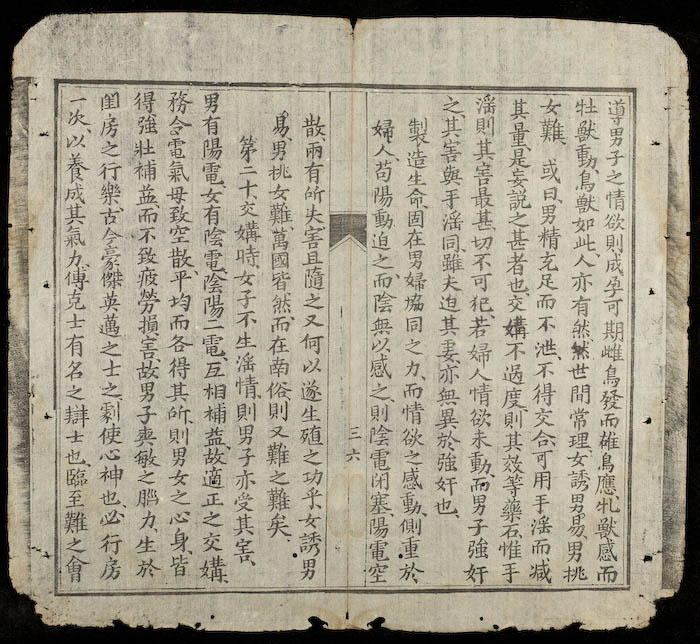 導男子之情欲則成孕可期雌鳥發而雄鳥應牝獸感而
牡獸動鳥獸如此人亦有然然世間常理女誘男易男挑
女難、或曰男精充足而不泄、不得交合、可用手淫而、减
其量、是妄説之甚者也、交媾不過度則其效等藥石、惟手
淫則其害最甚、切不可犯、若婦人情欲未動、而男子強奸
之、其害與手淫同、雖夫迫其妻、亦無異於強奸也、
製造生命、固在男婦協同之力、而情欲之感動、側重於
婦人、苟陽動迫之、而陰無以感之、則陰電閉塞、陽電空
三六
散、兩有所失、害且隨之、又何以遂生殖之功乎、女誘男
易、男挑女難、萬國皆然、而在南俗則又難之難矣、
第二十、交媾時、女子不生淫情、則男子亦受其害、
男有陽電、女有陰電、陰陽二電、互相補益、故適正之交媾、
務合電氣、毋致空散、平均而各得其所、則男女之心身、皆
得強壯補益、而不致疲勞損害、故男子爽敏之腦力、生於
閨房之行樂、古今豪傑英邁之士之劇使心神也、必行房
一次、以養成其氣力、傅克士有名之辯士也、臨至難之會